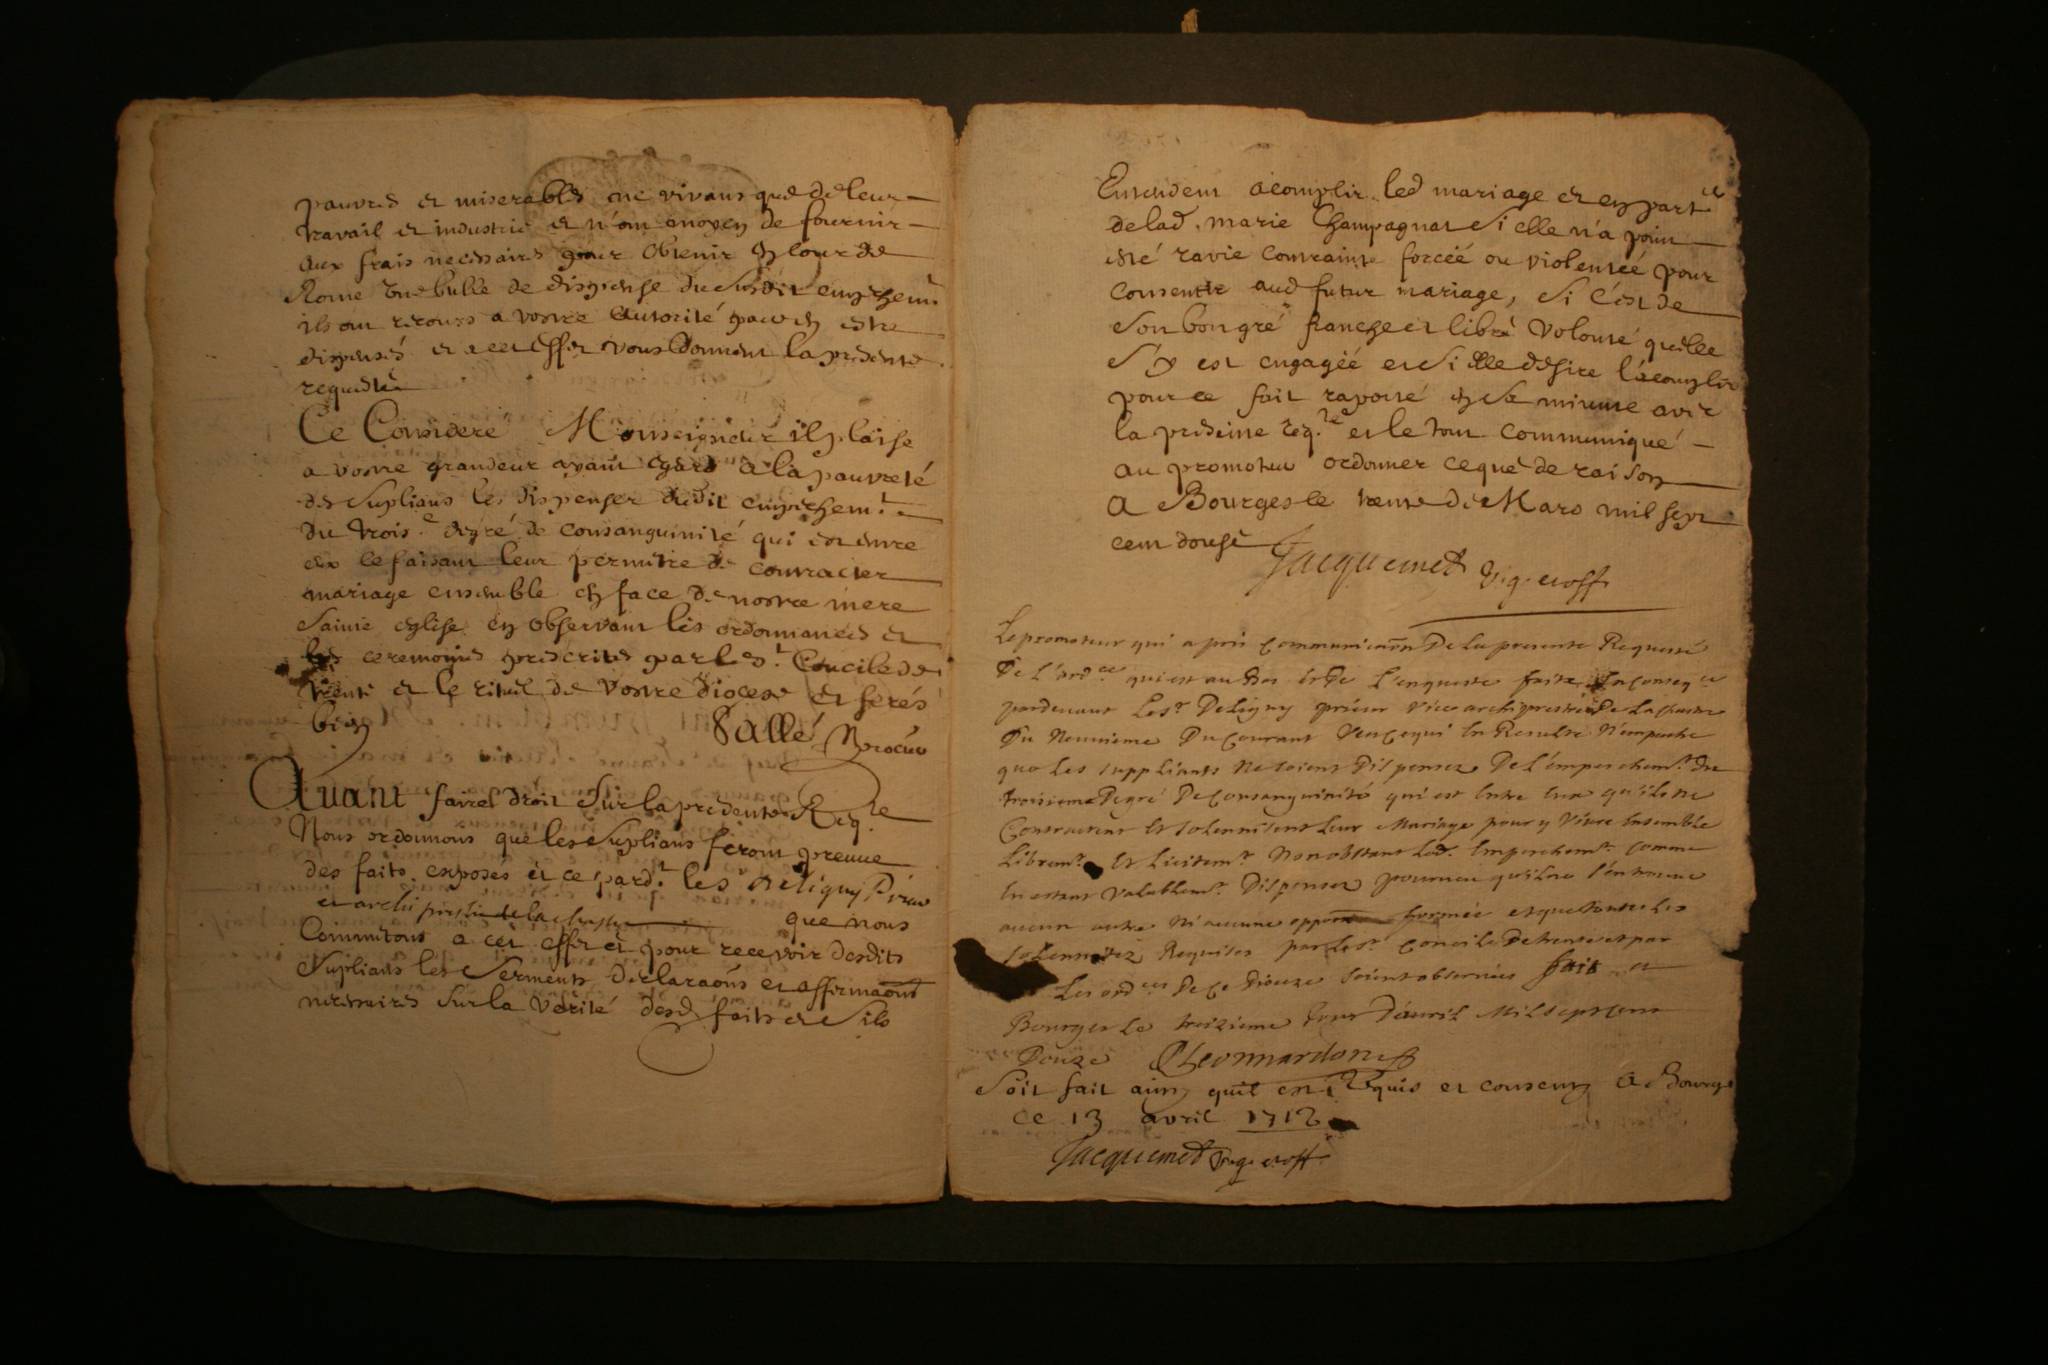 pauvres et miserables ne vivans que de leur
travail et industrie et n'ont moyen de fournir
aux frais necessaires pour obtenir en cour de
Rome une bulle de dispense du susdit empeschem.t
ils ont recours a vostre autorité pour en estre
dispensés et a cet effet vous donnent la presente
requeste
Ce Consideré Monseigneur il plaise
a vostre grandeur ayant egard a la pauvreté
des suplians les dispenser dudit empeschem.t
du trois.e degré de consanguinité qui est entre
eux ce faisant leur permetre de contracter
mariage ensemble en face de nostre mere
sainte eglise en observant les ordonnances et
les ceremonies prescrites par le s.t Concile de
trente et le rituel de vostre diocese et ferés
bien
Sallé Procur
Avant faire droit sur la presente Req.te
Nous ordonnons que les suplians feront preuve
des faits exposés et ce pard.t le s.r de Ligny Prieur
et archiprestre de la chastre que nous
Commetons a cet effet et pour recevoir desdits
suplians les serments declaraons et affirmaons
necessaires sur la verité desd. faits et s'ils
Entendent acomplir led mariage et en part.er
de lad. marie Champagnat si elle n'a point
esté ravie contrainte forcéé ou violentéé pour
consentir aud futur mariage, si c'est de
son bon gré franche et libre volonté quelle
s'y est engagéé et si elle desire l'acomplir
pour ce fait raporté en sa minute avec
la presente req.te et le tout communiqué
au promoteur ordonner ce que de raison
A Bourges le trente de Mars mil sept
cent douse
Jacquemet Vig. et off.
Le promoteur qui a pris communicaon De la presente Requeste
De l'ord.ce qui est au bas et De l'enqueste faite En conseq.ce
pardevant Le s.r De Ligny prieur Vice archiprestre De La chastre
Du Neuvieme Du courant Veu ce qui En Resulte N'empeche
que Les suppliants Ne soient Dispensez De L'empeschem.t du
troisieme Degré De consanguinité qui est Entre Eux qu'ils ne
Contractent et solennisent leur Mariage pour y Vivre Ensemble
Librem.t Et licitem.t Nonobstant led. Empeschem.t comme
En estant Valablem.t Dispensez pourveu qu'il ne s'en trouve
aucun autre Ni aucune oppon formée et que toutes les
solennitez Requises par le s.t concile De trente et par
Les ord.ces De ce Diocese soient observées fait a
Bourges Le treizieme Jour D'avril Mil sept cent
Douze CLeonnardon
Soit fait ainsy quil est requis et consenty A Bourges
ce 13 avril 1712
Jacquemet Vig. et off.